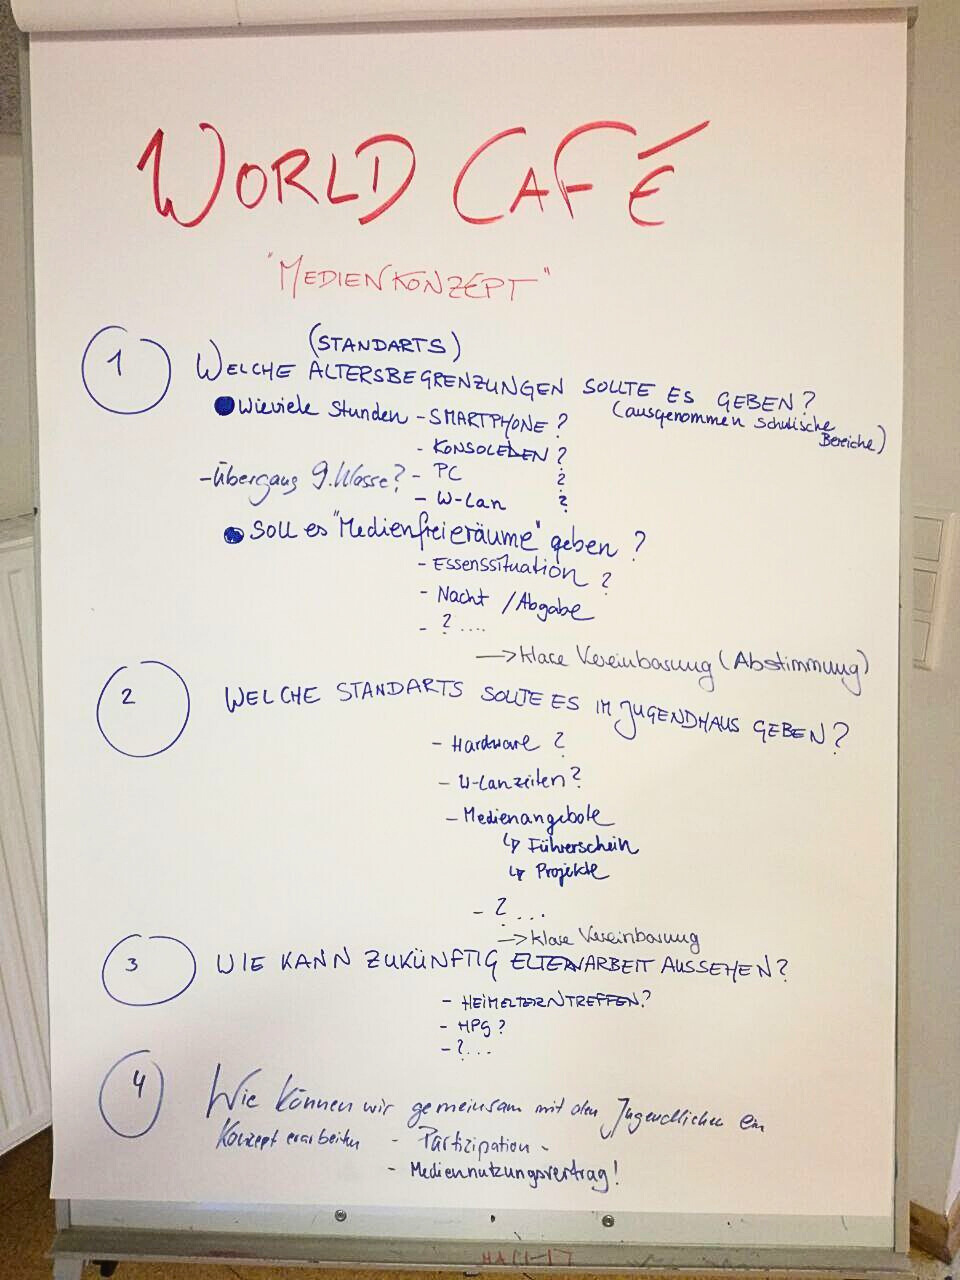 WORLD CAFÉ
"MEDIENKONZEPT"
1
(STANDARTS)
WELCHE ALTERSBEGRENZUNGEN SOLLTE ES GEBEN?
(ausgenommen schulische
Bereiche)
Wieviele Stunden - SMARTPHONE?
- KONSOLEDEN?
-Übergang 9. Klasse? - PC ?
- W-Lan ?
Soll es "Medienfreieräume" geben?
- Essenssituation?
- Nacht / Abgabe
- ? ....
→ klare Vereinbarung (Abstimmung)
2
WELCHE STANDARTS SOLLTE ES IM JUGENDHAUS GEBEN?
- Hardware ?
- W-Lanzeiten?
- Medienangebote
↳ Führerschein
↳ Projekte
- ? ...
→ klare Vereinbarung
3
WIE KANN ZUKÜNFTIG ELTERNARBEIT AUSSEHEN?
- HEIMELTERNTREFFEN?
- HPG?
- ?...
4
Wie können wir gemeinsam mit den Jugendlichen ein
Konzept erarbeiten - Partizipation -
- Mediennutzungsvertrag!